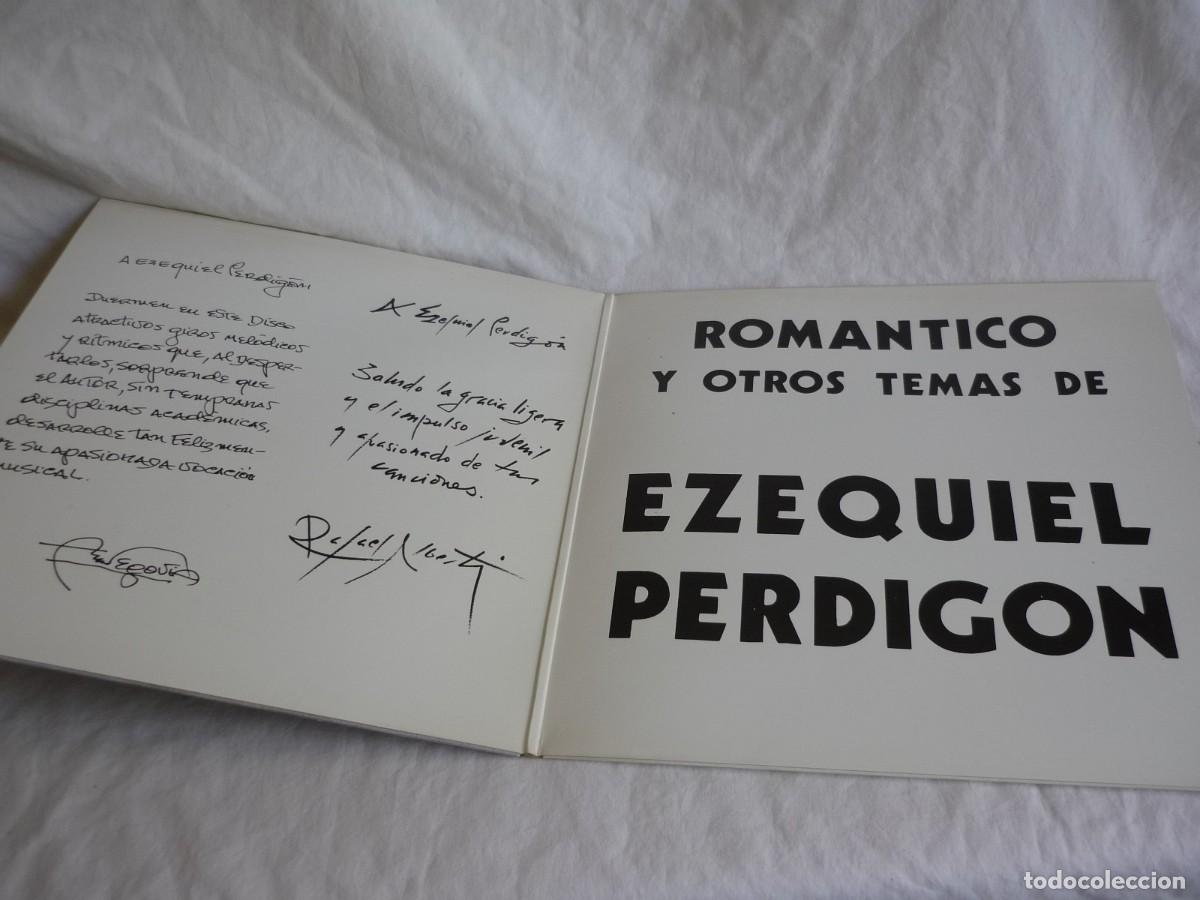 A EZEQUIEL PERDIGÓN
DUERMEN EN ESTE DISCO
ATRACTIVOS GIROS MELÓDICOS
Y RÍTMICOS QUE, AL DESPER-
TARLOS, SORPRENDE QUE
EL AUTOR, SIN TEMPRANAS
DISCIPLINAS ACADÉMICAS,
DESARROLLE TAN FELIZMEN-
E SU APASIONADA VOCACIÓN
MUSICAL.
A Ezequiel Perdigón
Saludo la gracia ligera
y el impulso juvenil
y apasionado de tus
canciones.
Rafael Alberti
ROMANTICO
Y OTROS TEMAS DE
EZEQUIEL
PERDIGON
todocoleccion